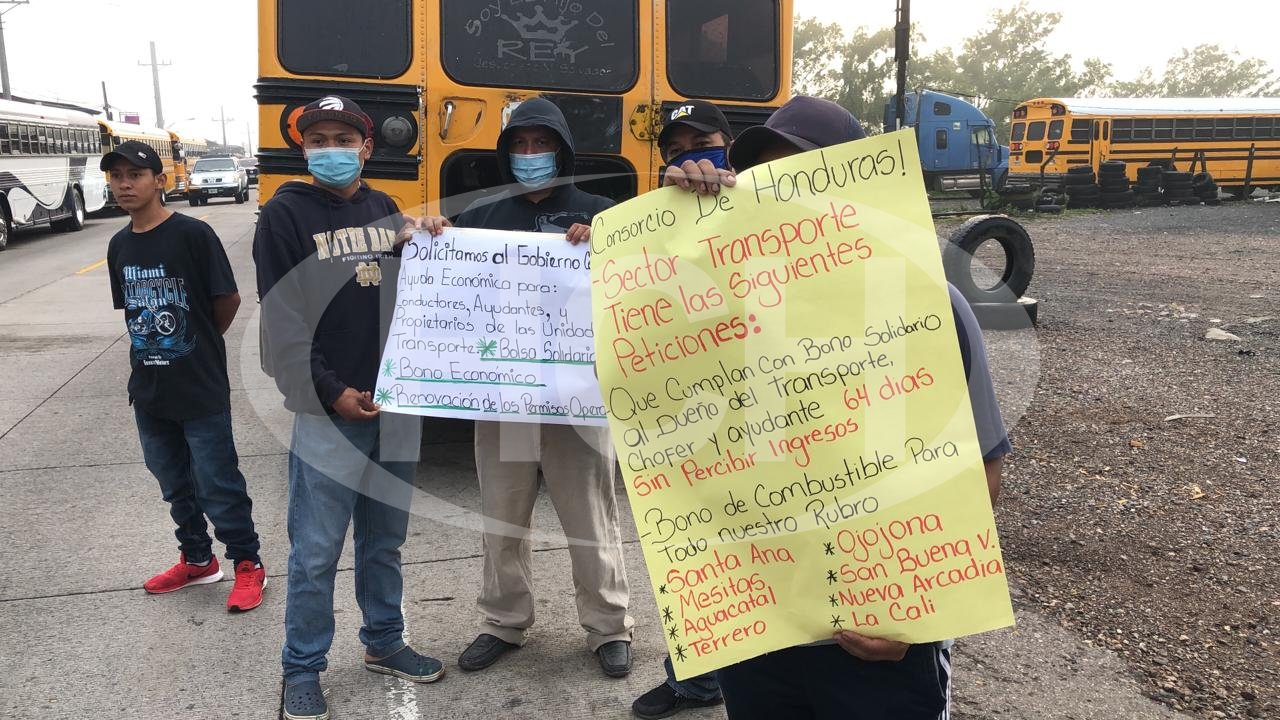 Soy El Hijo Del
REY
CAT
NOTRE DAME
FIGHTING IRISH
ND
Miami
MOTORCYCLE
Solicitamos al Gobierno
Ayuda Económica para:
Conductores, Ayudantes, y
Propietarios de las Unidad
Transporte. * Bolsa Solidaria
* Bono Económico
* Renovación de los Permisos Opera
Consorcio De Honduras!
-Sector Transporte
Tiene las Siguientes
Peticiones:
-Que Cumplan Con Bono Solidario
al Dueño del Transporte,
Chofer y ayudante 64 dias
Sin Percibir Ingresos
-Bono de Combustible Para
Todo nuestro Rubro
* Santa Ana
* Mesitas
* Aguacatal
* Terrero
* Ojojona
* San Buena V.
* Nueva Arcadia
* La Cali
HCH